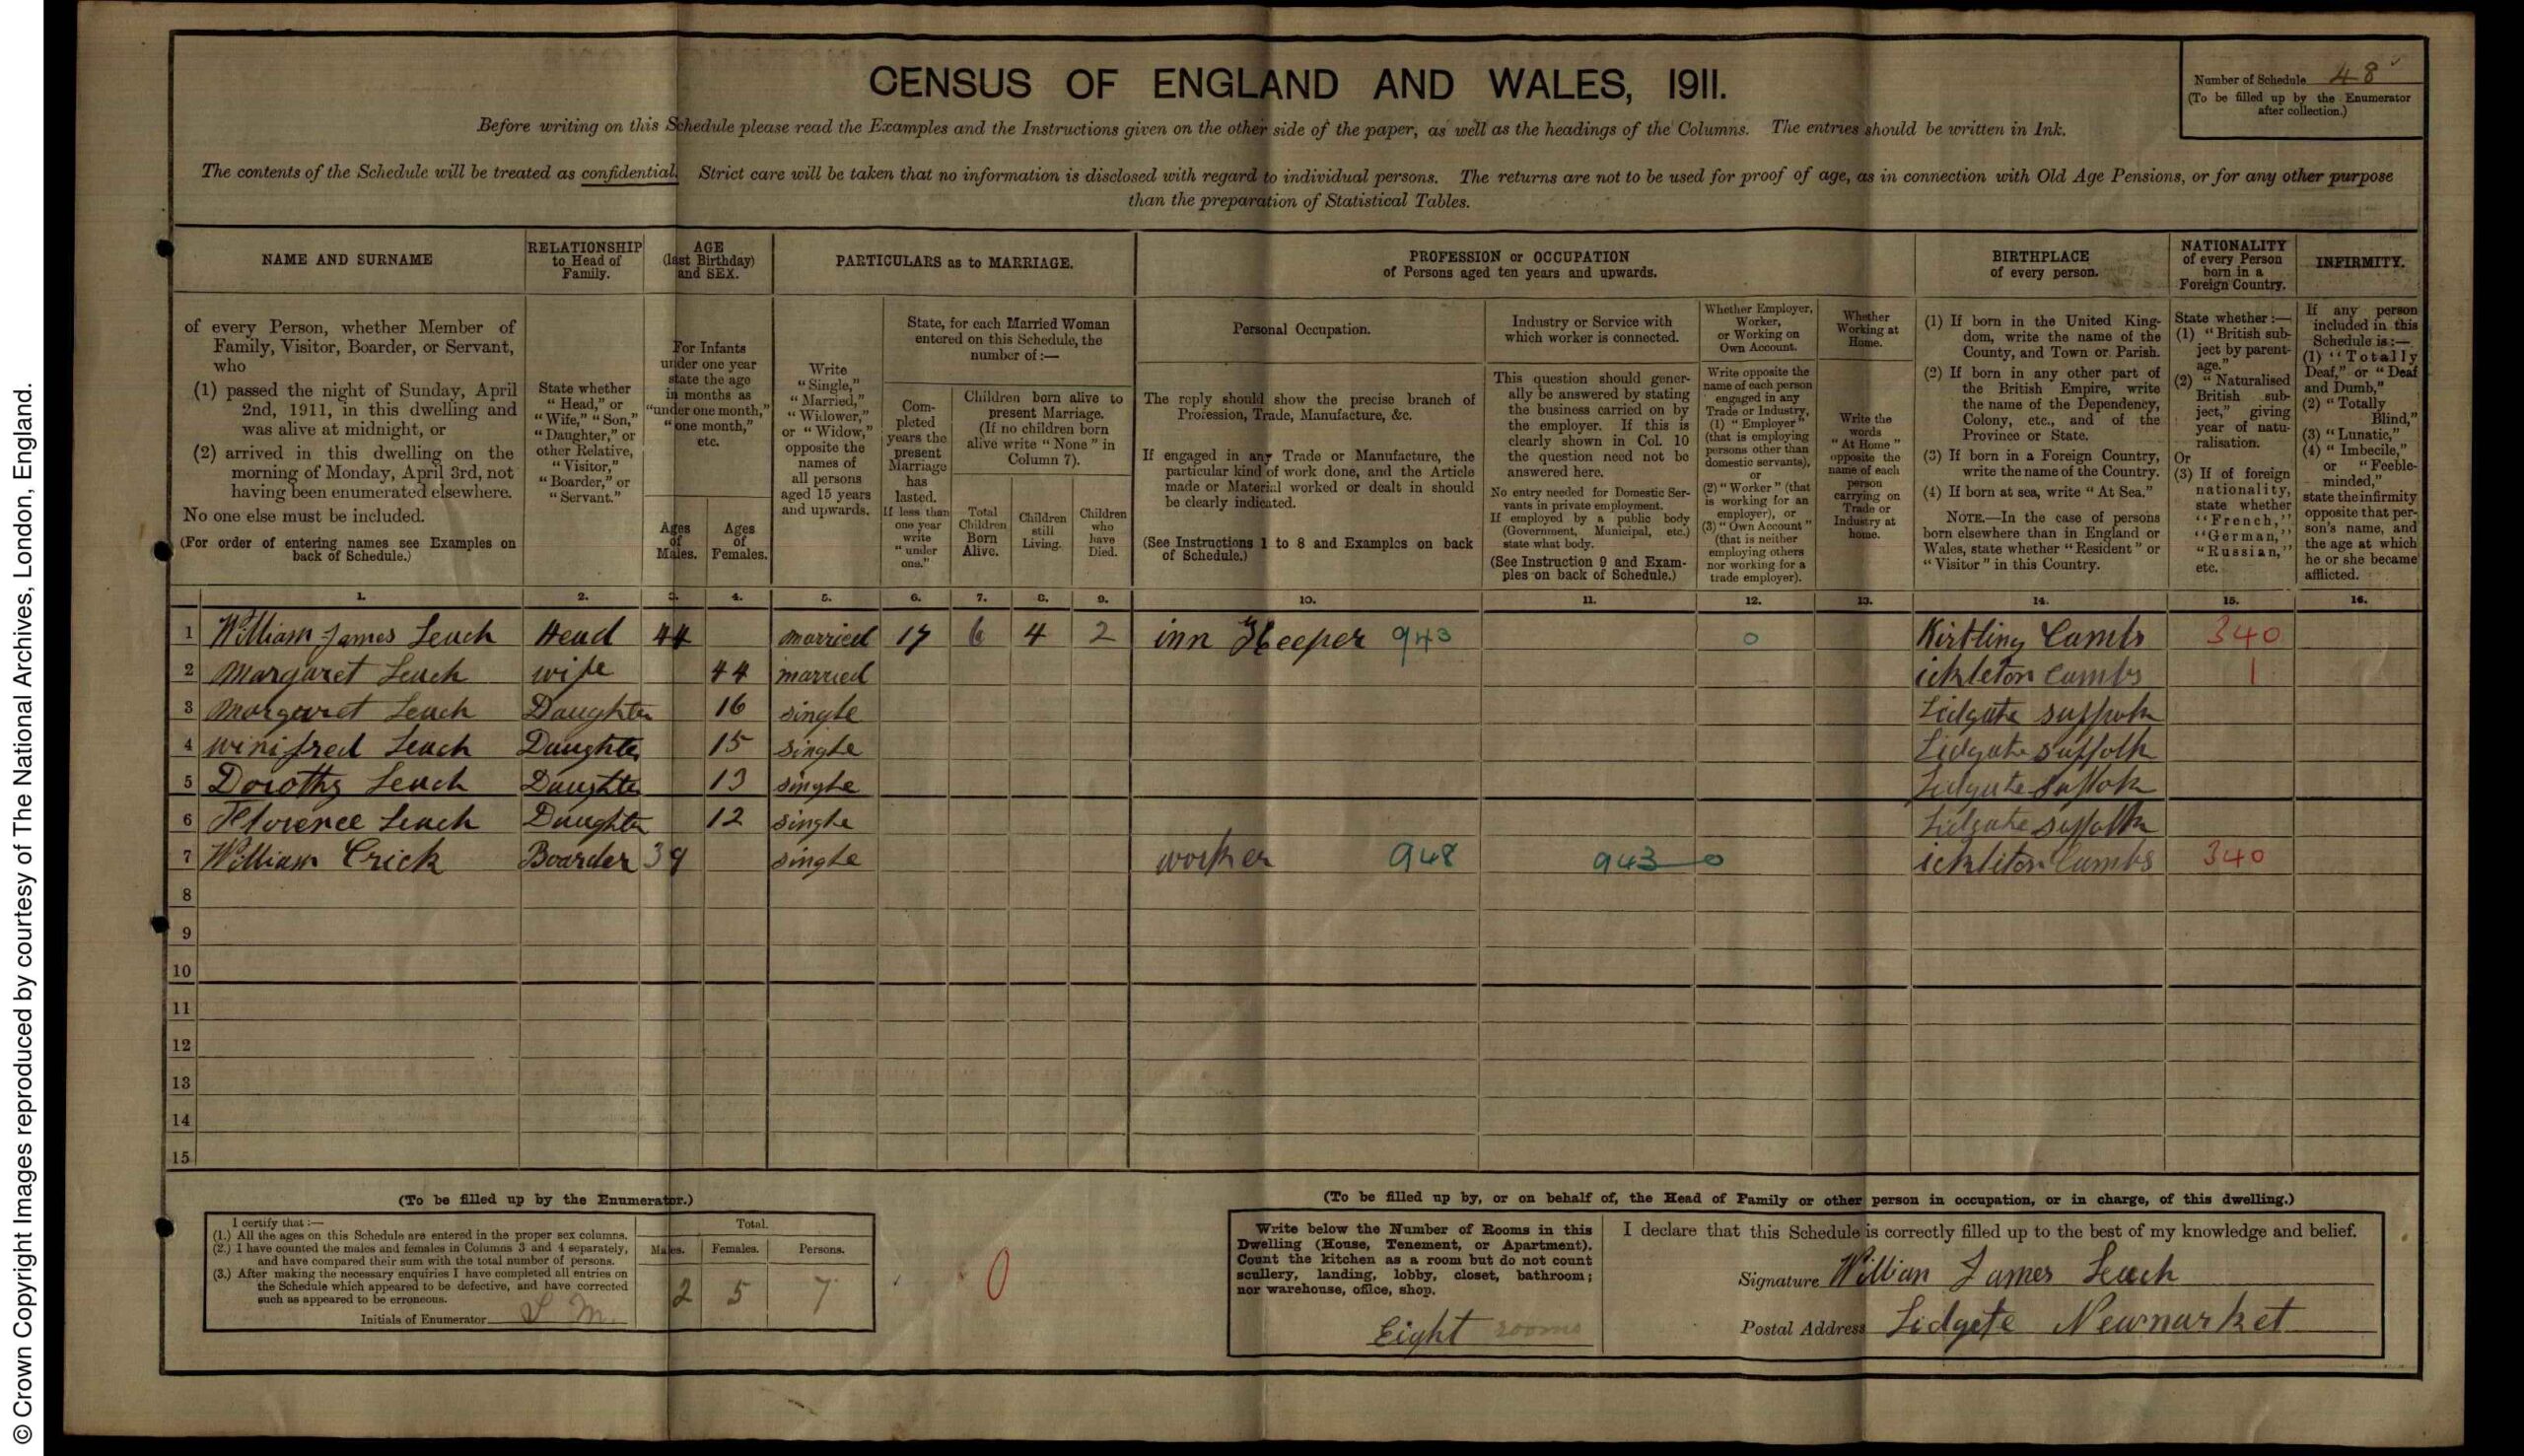 CENSUS OF ENGLAND AND WALES, 1911.
Number of Schedule 48
(To be filled up by the Enumerator
after collection.)
Before writing on this Schedule please read the Examples and the Instructions given on the other side of the paper, as well as the headings of the Columns. The entries should be written in Ink.
The contents of the Schedule will be treated as confidential. Strict care will be taken that no information is disclosed with regard to individual persons. The returns are not to be used for proof of age, as in connection with Old Age Pensions, or for any other purpose
than the preparation of Statistical Tables.
NAME AND SURNAME
of every Person, whether Member of
Family, Visitor, Boarder, or Servant,
who
(1) passed the night of Sunday, April
2nd, 1911, in this dwelling and
was alive at midnight, or
(2) arrived in this dwelling on the
morning of Monday, April 3rd, not
having been enumerated elsewhere.
No one else must be included.
(For order of entering names see Examples on
back of Schedule.)
RELATIONSHIP
to Head of
Family.
State whether
"Head," or
"Wife," "Son,"
"Daughter," or
other Relative,
"Visitor,"
"Boarder," or
"Servant."
AGE
(last Birthday)
and SEX.
For Infants
under one year
state the age
in months as
"under one month,"
"one month,"
etc.
Ages
of
Males.
Ages
of
Females.
PARTICULARS as to MARRIAGE.
Write
"Single,"
"Married,"
"Widower,"
or "Widow,"
opposite the
names of
all persons
aged 15 years
and upwards.
State, for each Married Woman
entered on this Schedule, the
number of :—
Com-
pleted
years the
present
Marriage
has
lasted.
If less than
one year
write
"under
one."
Children born alive to
present Marriage.
(If no children born
alive write "None" in
Column 7).
Total
Children
Born
Alive.
Children
still
Living.
Children
who
have
Died.
PROFESSION or OCCUPATION
of Persons aged ten years and upwards.
Personal Occupation.
The reply should show the precise branch of
Profession, Trade, Manufacture, &c.
If engaged in any Trade or Manufacture, the
particular kind of work done, and the Article
made or Material worked or dealt in should
be clearly indicated.
(See Instructions 1 to 8 and Examples on back
of Schedule.)
Industry or Service with
which worker is connected.
This question should gener-
ally be answered by stating
the business carried on by
the employer. If this is
clearly shown in Col. 10
the question need not be
answered here.
No entry needed for Domestic Ser-
vants in private employment.
If employed by a public body
(Government, Municipal, etc.)
state what body.
(See Instruction 9 and Exam-
ples on back of Schedule.)
Whether Employer,
Worker,
or Working on
Own Account.
Write opposite the
name of each person
engaged in any
Trade or Industry,
(1) "Employer"
(that is employing
persons other than
domestic servants),
or
(2) "Worker" (that
is working for an
employer), or
(3) "Own Account"
(that is neither
employing others
nor working for a
trade employer).
Whether
Working at
Home.
Write the
words
"At Home"
opposite the
name of each
person
carrying on
Trade or
Industry at
home.
BIRTHPLACE
of every person.
(1) If born in the United King-
dom, write the name of the
County, and Town or Parish.
(2) If born in any other part of
the British Empire, write
the name of the Dependency,
Colony, etc., and of the
Province or State.
(3) If born in a Foreign Country,
write the name of the Country.
(4) If born at sea, write "At Sea."
NOTE.—In the case of persons
born elsewhere than in England or
Wales, state whether "Resident" or
"Visitor" in this Country.
NATIONALITY
of every Person
born in a
Foreign Country.
State whether :—
(1) "British sub-
ject by parent-
age."
(2) "Naturalised
British sub-
ject," giving
year of natu-
ralisation.
Or
(3) If of foreign
nationality,
state whether
"French,"
"German,"
"Russian,"
etc.
INFIRMITY.
If any person
included in this
Schedule is :—
(1) "Totally
Deaf," or "Deaf
and Dumb,"
(2) "Totally
Blind,"
(3) "Lunatic,"
(4) "Imbecile,"
or "Feeble-
minded,"
state the infirmity
opposite that per-
son's name, and
the age at which
he or she became
afflicted.
1. 2. 3. 4. 5. 6. 7. 8. 9. 10. 11. 12. 13. 14. 15. 16.
1 William James Leach Head 44 married 17 6 4 2 inn Keeper 943 0 Kirtling Cambs 340
2 Margaret Leach wife 44 married ickleton Cambs 1
3 Margaret Leach Daughter 16 single Lidgate suffolk
4 winifred Leach Daughter 15 single Lidgate suffolk
5 Dorothy Leach Daughter 13 single Lidgate suffolk
6 Florence Leach Daughter 12 single Lidgate suffolk
7 William Crick Boarder 39 single worker 948 943 0 ickliton Cambs 340
8
9
10
11
12
13
14
15
(To be filled up by the Enumerator.)
I certify that :—
(1.) All the ages on this Schedule are entered in the proper sex columns.
(2.) I have counted the males and females in Columns 3 and 4 separately,
and have compared their sum with the total number of persons.
(3.) After making the necessary enquiries I have completed all entries on
the Schedule which appeared to be defective, and have corrected
such as appeared to be erroneous.
Initials of Enumerator
Total.
Males. Females. Persons.
2 5 7
0
(To be filled up by, or on behalf of, the Head of Family or other person in occupation, or in charge, of this dwelling.)
Write below the Number of Rooms in this
Dwelling (House, Tenement, or Apartment).
Count the kitchen as a room but do not count
scullery, landing, lobby, closet, bathroom;
nor warehouse, office, shop.
Eight rooms
I declare that this Schedule is correctly filled up to the best of my knowledge and belief.
Signature William James Leach
Postal Address Lidgate Newmarket
© Crown Copyright Images reproduced by courtesy of The National Archives, London, England.